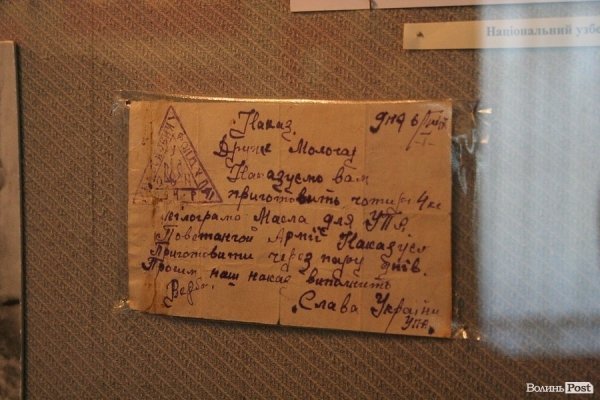 Національний узбе
Наказ дня 6/
Друже Молочар
Наказуємо вам
приготовить чотири 4 кг
кілограма Масла для УПА,
Повстанчої Армії Наказує
Приготовити через пару днів.
Просим наш наказ виполнить
Слава Україні
УПА.
ВолиньPost